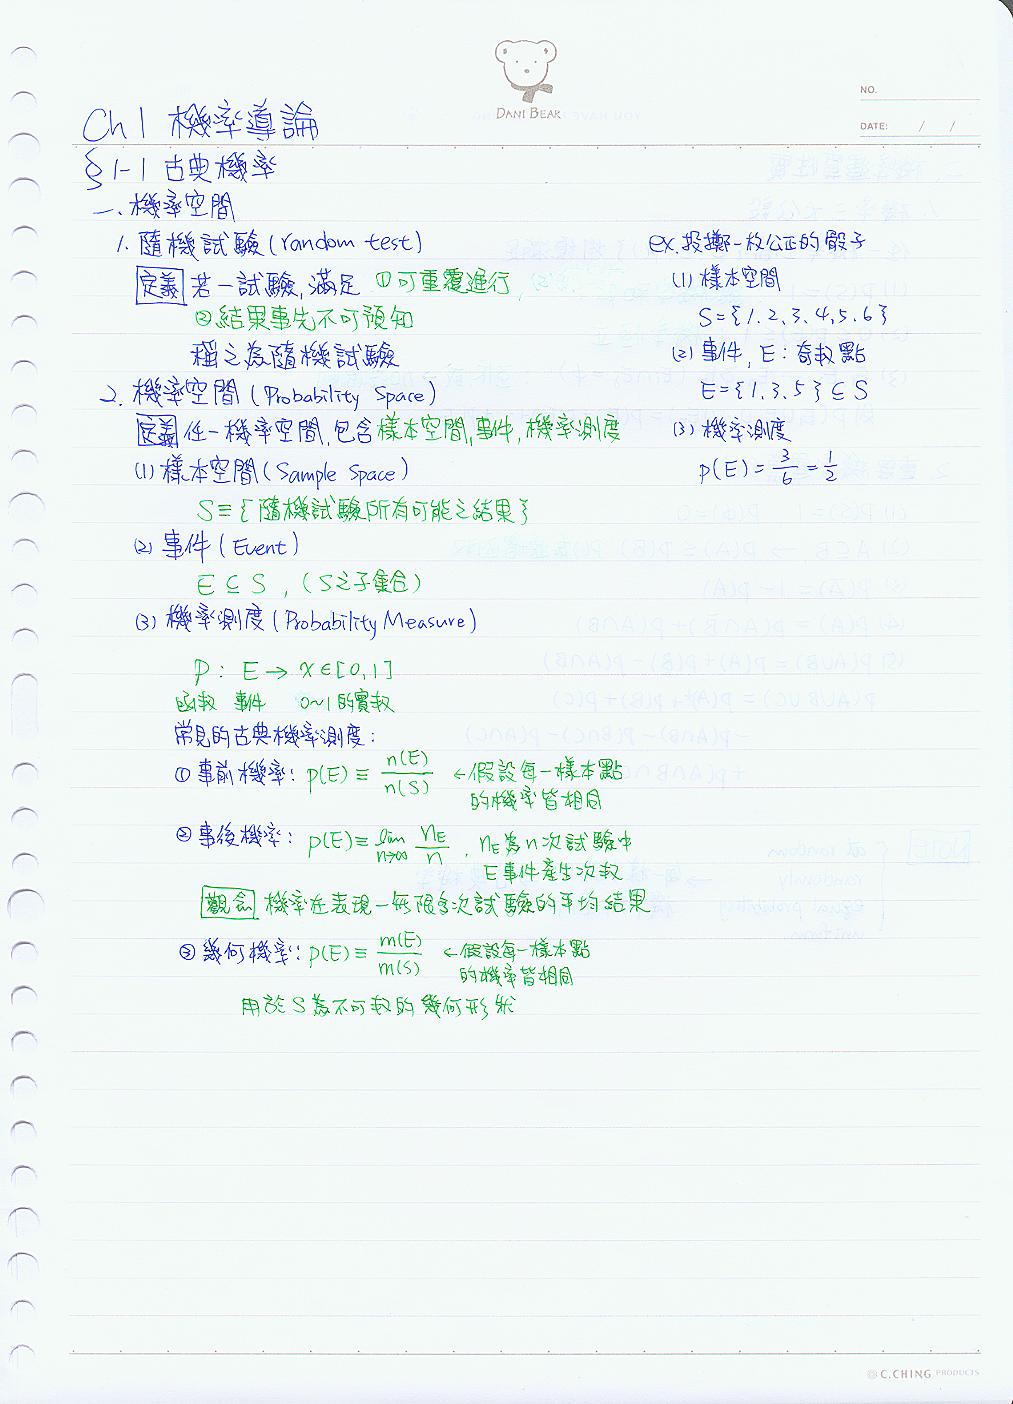 DANI BEAR
NO.
DATE: / /
Ch 1 機率導論
§ 1-1 古典機率
一. 機率空間
1. 隨機試驗 (random test)
定義 若一試驗, 滿足 ①可重覆進行,
②結果事先不可預知
稱之為隨機試驗
2. 機率空間 (Probability Space)
定義 任一機率空間, 包含樣本空間, 事件, 機率測度
(1) 樣本空間 (Sample Space)
S ≡ { 隨機試驗所有可能之結果 }
(2) 事件 (Event)
E ⊆ S , (S之子集合)
(3) 機率測度 (Probability Measure)
P : E → x ∈ [0,1]
函数 事件 0~1的實数
常見的古典機率測度:
① 事前機率: p(E) ≡ n(E)/n(S) ← 假設每一樣本點
的機率皆相同
② 事後機率: p(E) ≡ lim n→∞ nE/n , nE為n次試驗中
E事件產生次数
觀念 機率在表現一無限多次試驗的平均結果
③ 幾何機率: p(E) ≡ m(E)/m(S) ← 假設每一樣本點
的機率皆相同
用於S為不可数的幾何形狀
ex. 投擲一枚公正的骰子
(1) 樣本空間
S = {1.2.3.4.5.6}
(2) 事件, E: 奇数點
E = {1.3.5} ⊆ S
(3) 機率測度
p(E) = 3/6 = 1/2
C.CHING PRODUCTS